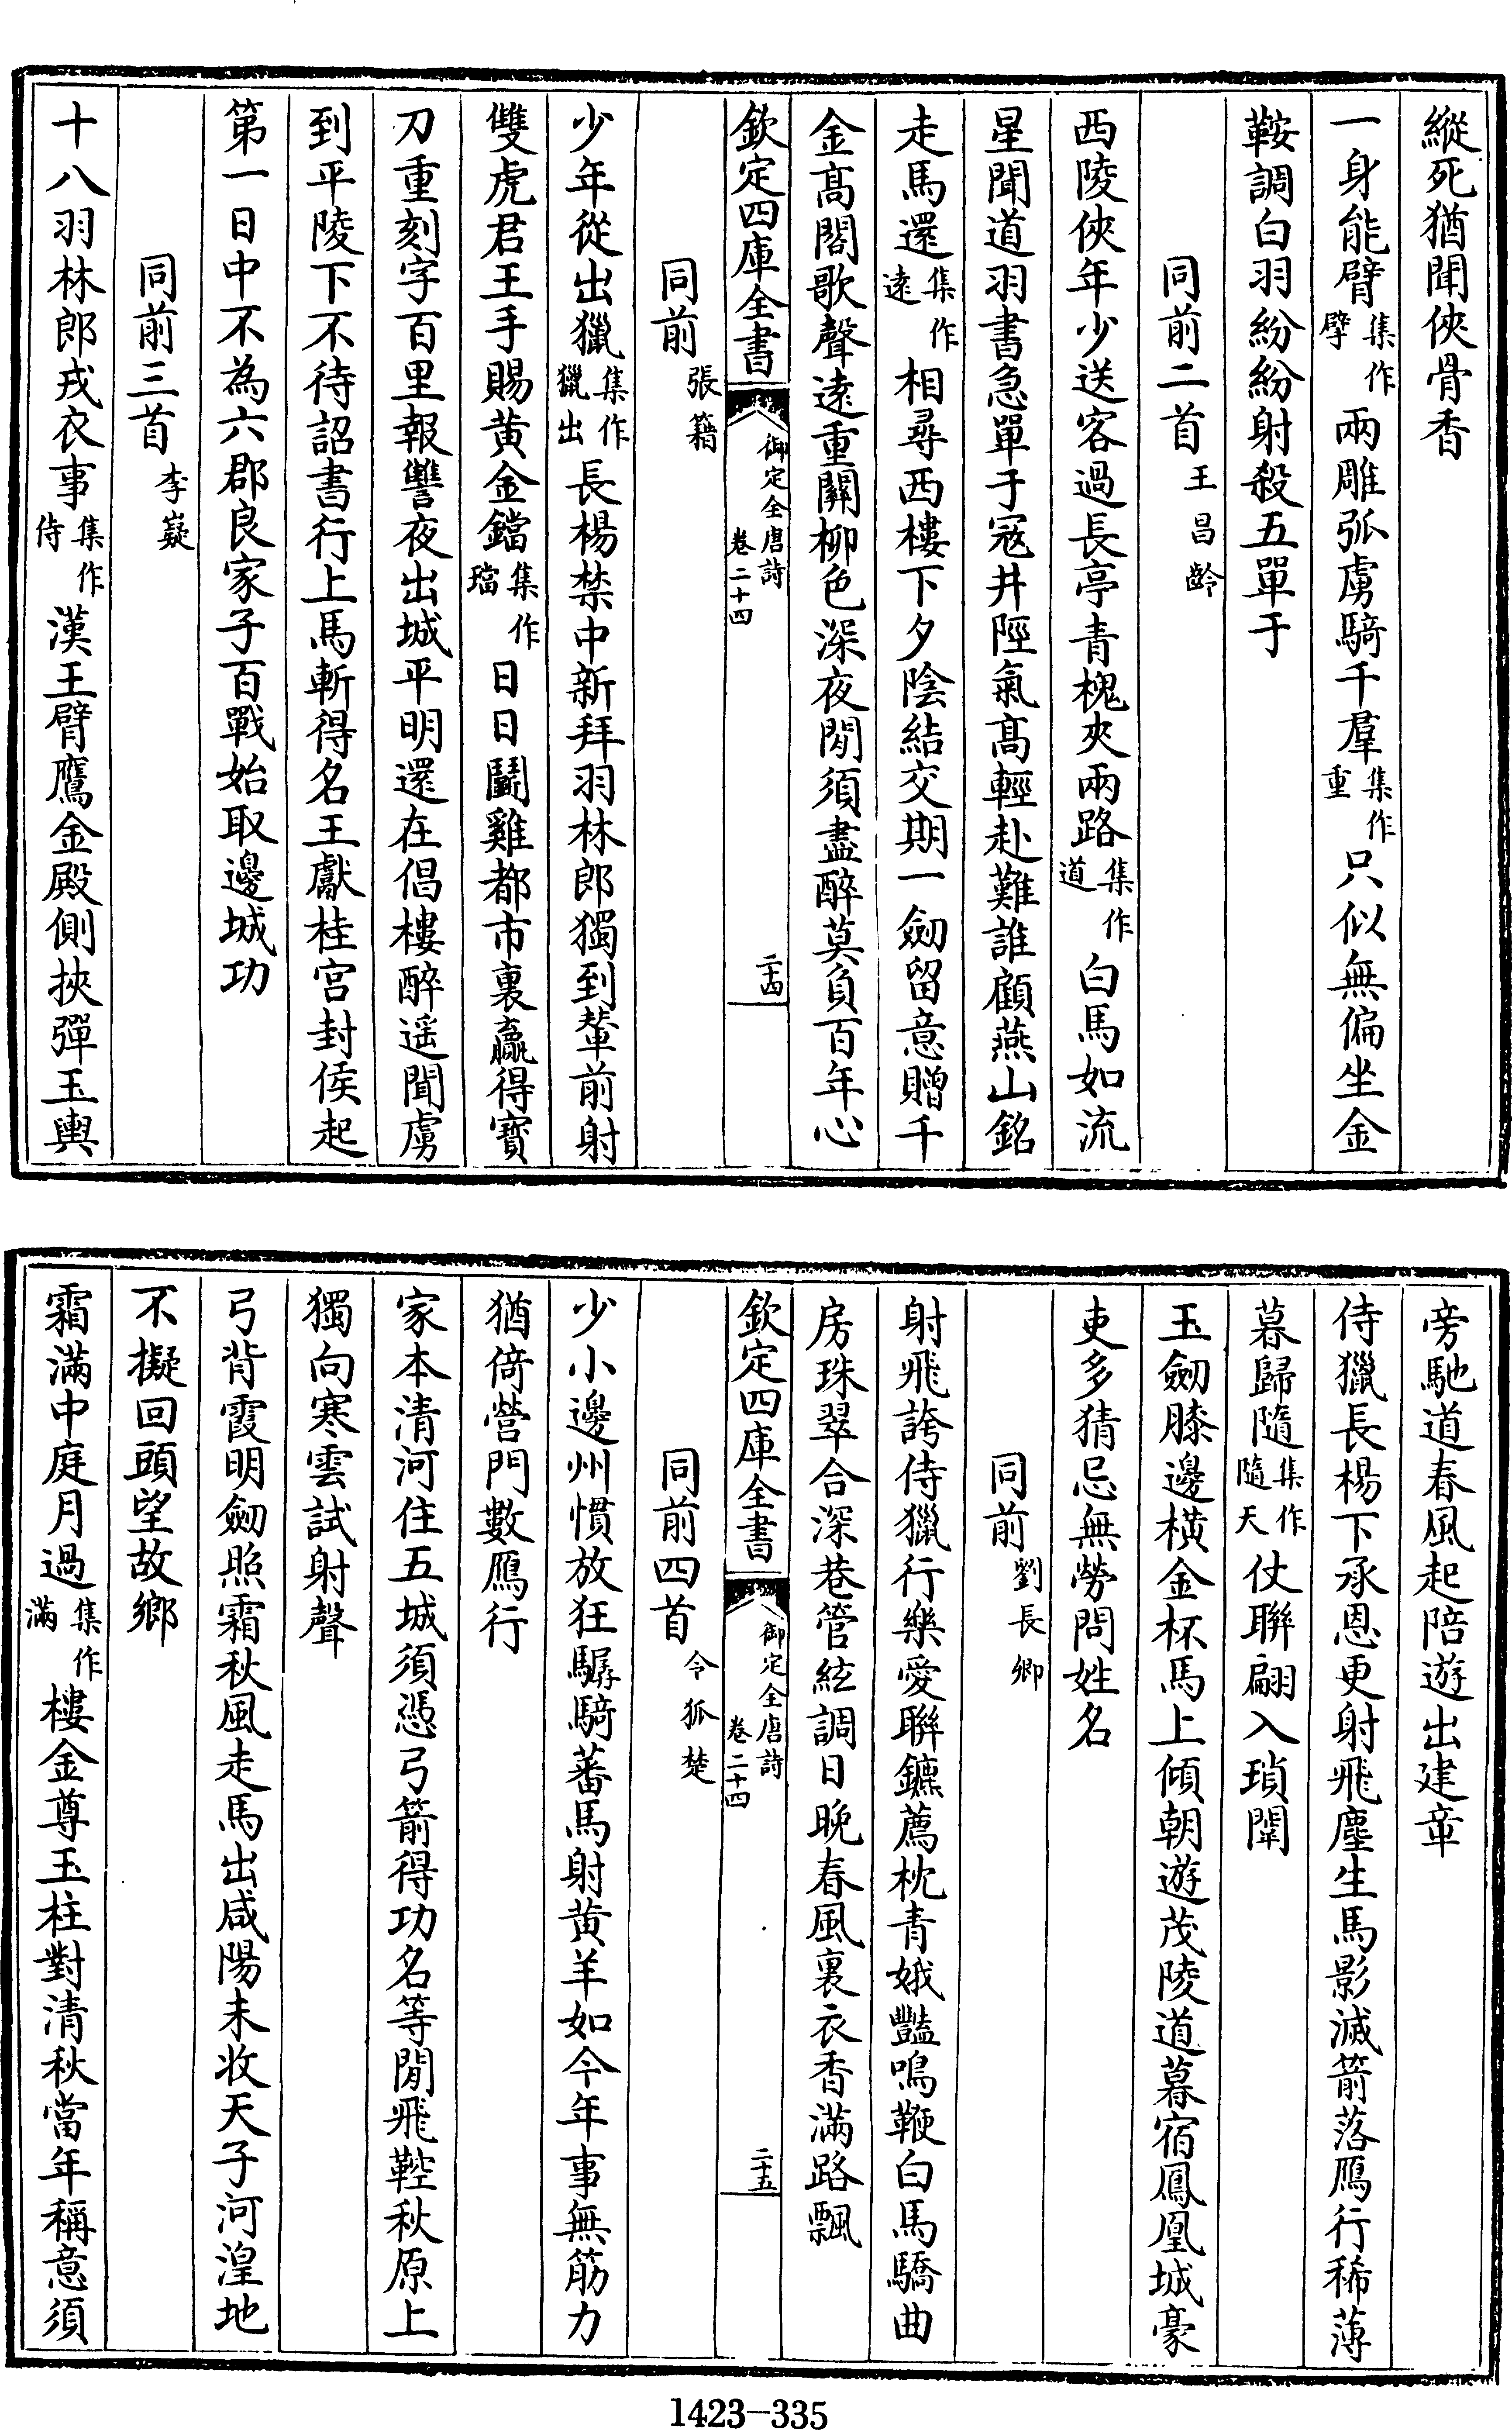 縱死猶聞俠骨香
一身能臂集作擘兩雕弧虜騎千羣集作重只似無偏坐金
鞍調白羽紛紛射殺五單于
同前二首王昌齡
西陵俠年少送客過長亭青槐夾兩路集作道白馬如流
星聞道羽書急單于寇井陘氣高輕赴難誰顧燕山銘
走馬還集作遠相尋西樓下夕陰結交期一劒留意贈千
金高閣歌聲遠重關柳色深夜閒須盡醉莫負百年心
欽定四庫全書 御定全唐詩卷二十四 二十四
同前張籍
少年從出獵集作獵出長楊禁中新拜羽林郎獨到輦前射
雙虎君王手賜黃金鐺集作璫日日鬭雞都市裏贏得寶
刀重刻字百里報讐夜出城平明還在倡樓醉遥聞虜
到平陵下不待詔書行上馬斬得名王獻桂宮封侯起
第一日中不為六郡良家子百戰始取邊城功
同前三首李嶷
十八羽林郎戎衣事集作侍漢王臂鷹金殿側挾彈玉輿
旁馳道春風起陪遊出建章
侍獵長楊下承恩更射飛塵生馬影滅箭落鴈行稀薄
暮歸隨集作隨天仗聯翩入瑣闈
玉劒膝邊橫金杯馬上傾朝遊茂陵道暮宿鳳凰城豪
吏多猜忌無勞問姓名
同前劉長卿
射飛誇侍獵行樂愛聯鑣薦枕青娥豔鳴鞭白馬驕曲
房珠翠合深巷管絃調日晚春風裏衣香滿路飄
欽定四庫全書 御定全唐詩卷二十四 二十五
同前四首令狐楚
少小邊州慣放狂驏騎蕃馬射黄羊如今年事無筋力
猶倚營門數鴈行
家本清河住五城須憑弓箭得功名等閒飛鞚秋原上
獨向寒雲試射聲
弓背霞明劒照霜秋風走馬出咸陽未收天子河湟地
不擬回頭望故鄉
霜滿中庭月過集作滿樓金尊玉柱對清秋當年稱意須
1423-335